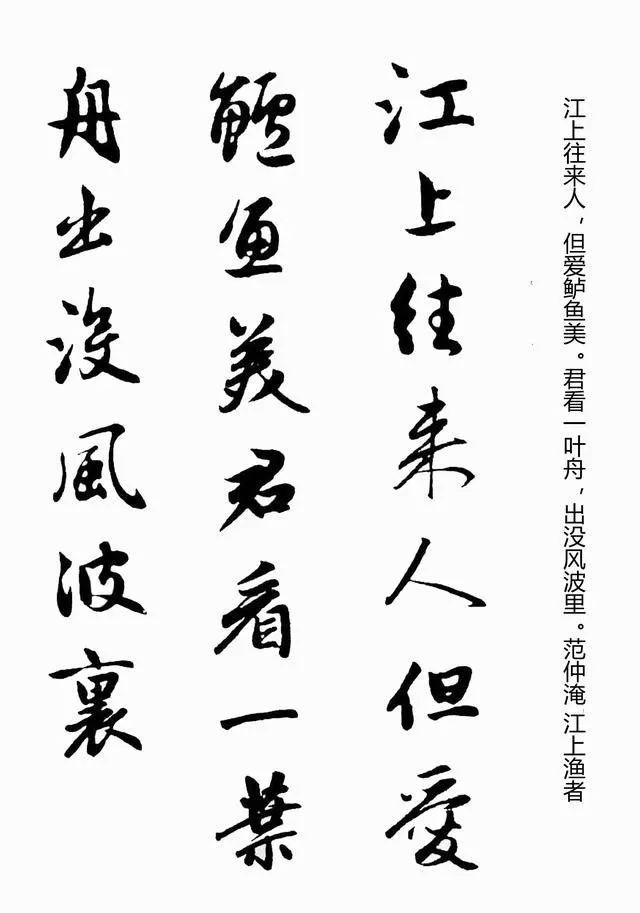 江上往来人，但爱鲈鱼美。君看一叶舟，出没风波里。范仲淹 江上渔者
江上往来人但爱
鱸鱼美君看一葉
舟出没風波裏